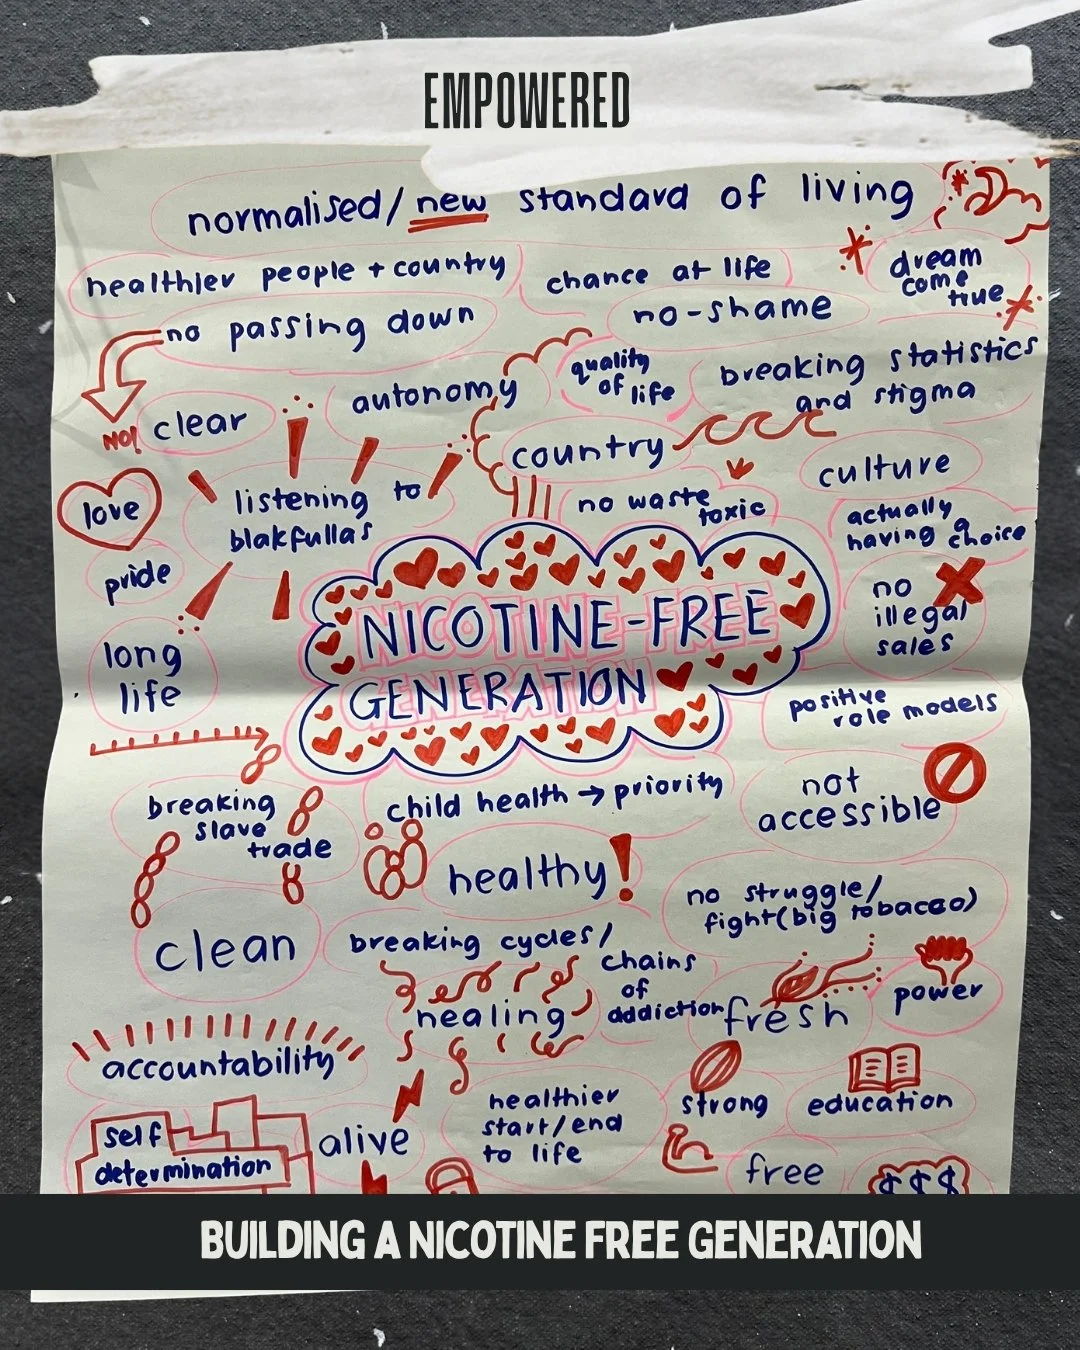 EMPOWERED
normalised/new standard of living
healthier people + country
chance at life
dream
come
true
no passing down
no-shame
autonomy
quality
of life
breaking statistics
and stigma
NO!
clear
country
culture
love
listening to
blakfullas
no waste
toxic
actually
having a
choice
pride
no
illegal
sales
NICOTINE-FREE
GENERATION
long
life
positive
role models
breaking
slave
trade
child health → priority
not
accessible
healthy!
no struggle/
fight (big tobacco)
clean
breaking cycles/
chains
of
addiction
healing
fresh
power
accountability
healthier
start/end
to life
strong
education
self
determination
alive
free
$$$
BUILDING A NICOTINE FREE GENERATION